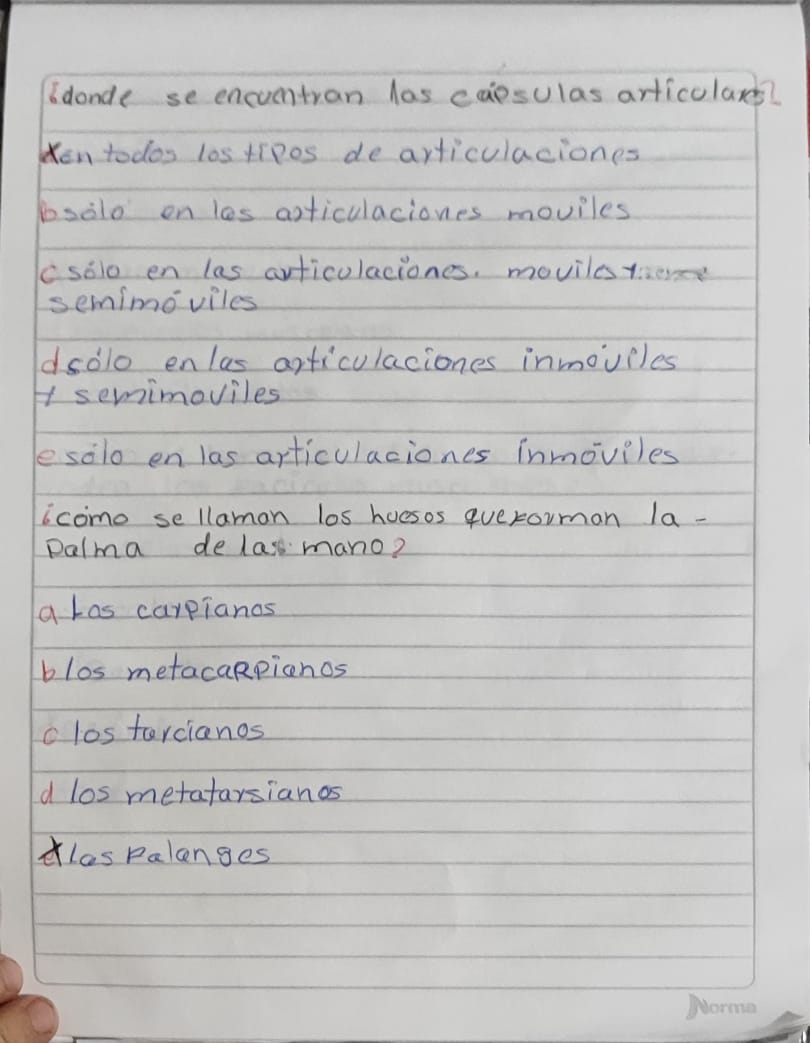 ¿donde se encuentran las cápsulas articulares?
en todos los tipos de articulaciones
b sólo en las articulaciones moviles
c sólo en las articulaciones. moviles
semimóviles
d sólo en las articulaciones inmóviles
y semimoviles
e sólo en las articulaciones inmóviles
¿cómo se llaman los huesos que forman la -
palma de las mano?
a Los carpianos
b los metacarpianos
c los tarcianos
d los metatarsianos
las Palanges
Norma